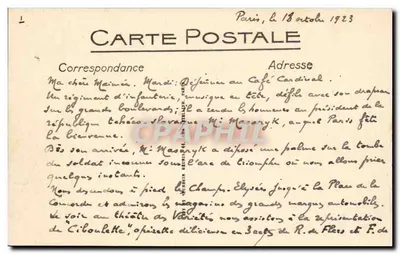 1
Paris, le 18 octobre 1923
CARTE POSTALE
Correspondance
Adresse
Ma chère Maimée. Mardi: Déjeuner au Café Cardinal.
Un régiment d'infanterie, musique en tête, défile avec son drapeau
sur les grands boulevards; Il a rendu les honneurs au président de la
république tchéco-slovaque Mr Masaryk, auquel Paris fête
la bienvenue.
Dès son arrivée, Mr Masaryk a déposé une palme sur la tombe
du soldat inconnu sous l'arc de triomphe où nous allons prier
quelques instants.
Nous descendons à pied les Champs-Elysées jusqu'à la Place de la
Concorde et admirons les magasins des grandes marques automobiles.
Le soir au théâtre des Variétés nous assistons à la représentation
de "Ciboulette", opérette délicieuse en 3 actes de R. de Flers et F. de